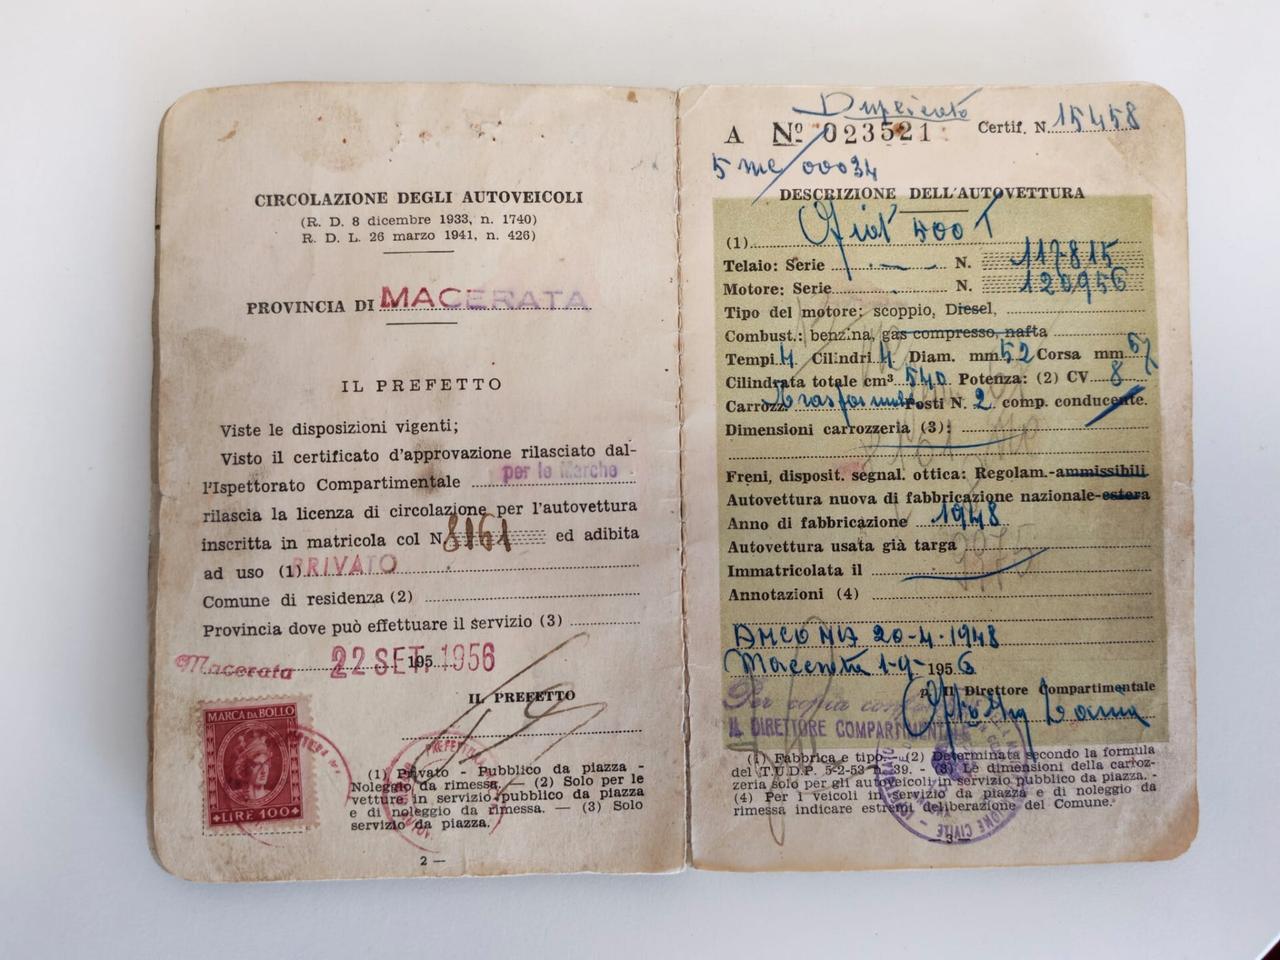 CIRCOLAZIONE DEGLI AUTOVEICOLI
(R. D. 8 dicembre 1933, n. 1740)
R. D. L. 26 marzo 1941, n. 426)
PROVINCIA DI MACERATA
IL PREFETTO
Viste le disposizioni vigenti;
Visto il certificato d'approvazione rilasciato dal-
l'Ispettorato Compartimentale per le Marche
rilascia la licenza di circolazione per l'autovettura
inscritta in matricola col N. 8161 ed adibita
ad uso (1) PRIVATO
Comune di residenza (2)
Provincia dove può effettuare il servizio (3)
Macerata 22 SET. 195 1956
IL PREFETTO
MARCA DA BOLLO
LIRE 100
(1) Privato - Pubblico da piazza -
Noleggio da rimessa. — (2) Solo per le
vetture in servizio pubblico da piazza
e di noleggio da rimessa. — (3) Solo
servizio da piazza.
2 —
Duplicato
A Nº 023521 Certif. N. 15458
5 mc/00034
DESCRIZIONE DELL'AUTOVETTURA
(1) Fiat 500 T
Telaio: Serie — N. 117815
Motore: Serie N. 120956
Tipo del motore: scoppio, Diesel,
Combust.: benzina, gas compresso, nafta
Tempi 4 Cilindri 4 Diam. mm 52 Corsa mm 67
Cilindrata totale cm³ 540 Potenza: (2) CV 8
Carrozz. Posti N. 2 comp. conducente.
Dimensioni carrozzeria (3):
Freni, disposit. segnal. ottica: Regolam.-ammissibili
Autovettura nuova di fabbricazione nazionale-estera
Anno di fabbricazione 1948
Autovettura usata già targa
Immatricolata il
Annotazioni (4)
ANCONA 20-4-1948
Macerata 1-9-1956
Per copia
p. Il Direttore Compartimentale
IL DIRETTORE COMPARTIMENTALE
(1) Fabbrica e tipo. - (2) Determinata secondo la formula
del T.U.D.P. 5-2-53 n. 39. - (3) Le dimensioni della carroz-
zeria solo per gli autoveicoli in servizio pubblico da piazza. -
(4) Per i veicoli in servizio da piazza e di noleggio da
rimessa indicare estremi deliberazione del Comune.
3